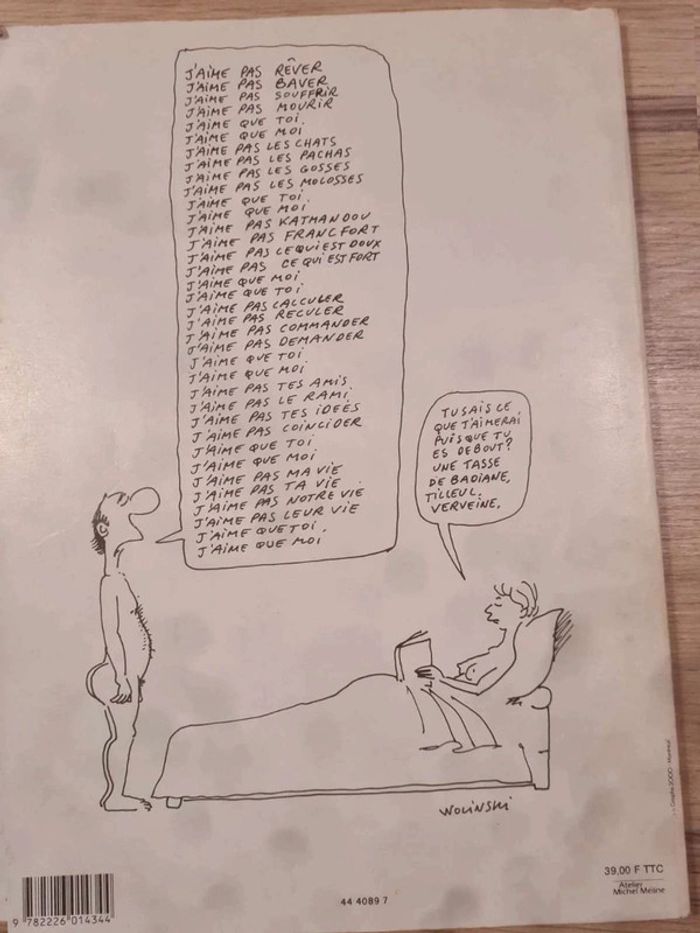 J'AIME PAS RÊVER
J'AIME PAS BAVER
J'AIME PAS SOUFFRIR
J'AIME PAS MOURIR
J'AIME QUE TOI.
J'AIME QUE MOI
J'AIME PAS LES CHATS
J'AIME PAS LES PACHAS
J'AIME PAS LES GOSSES
J'AIME PAS LES MOLOSSES
J'AIME QUE TOI.
J'AIME QUE MOI
J'AIME PAS KATMANDOU
J'AIME PAS FRANCFORT
J'AIME PAS CE QUI EST DOUX
J'AIME PAS CE QUI EST FORT
J'AIME QUE MOI
J'AIME QUE TOI
J'AIME PAS CALCULER
J'AIME PAS RECULER
J'AIME PAS COMMANDER
J'AIME PAS DEMANDER
J'AIME QUE TOI
J'AIME QUE MOI
J'AIME PAS TES AMIS
J'AIME PAS LE RAMI
J'AIME PAS TES IDÉES
J'AIME PAS COINCIDER
J'AIME QUE TOI
J'AIME QUE MOI
J'AIME PAS MA VIE
J'AIME PAS TA VIE
J'AIME PAS NOTRE VIE
J'AIME PAS LEUR VIE
J'AIME QUE TOI.
J'AIME QUE MOI
TU SAIS CE
QUE J'AIMERAI
PUISQUE TU
ES DEBOUT?
UNE TASSE
DE BADIANE,
TILLEUL.
VERVEINE.
WOLINSKI
Graphic 2000 - Montreuil
39,00 F TTC
Atelier
Michel Méline
44 4089 7
9 782226 014344